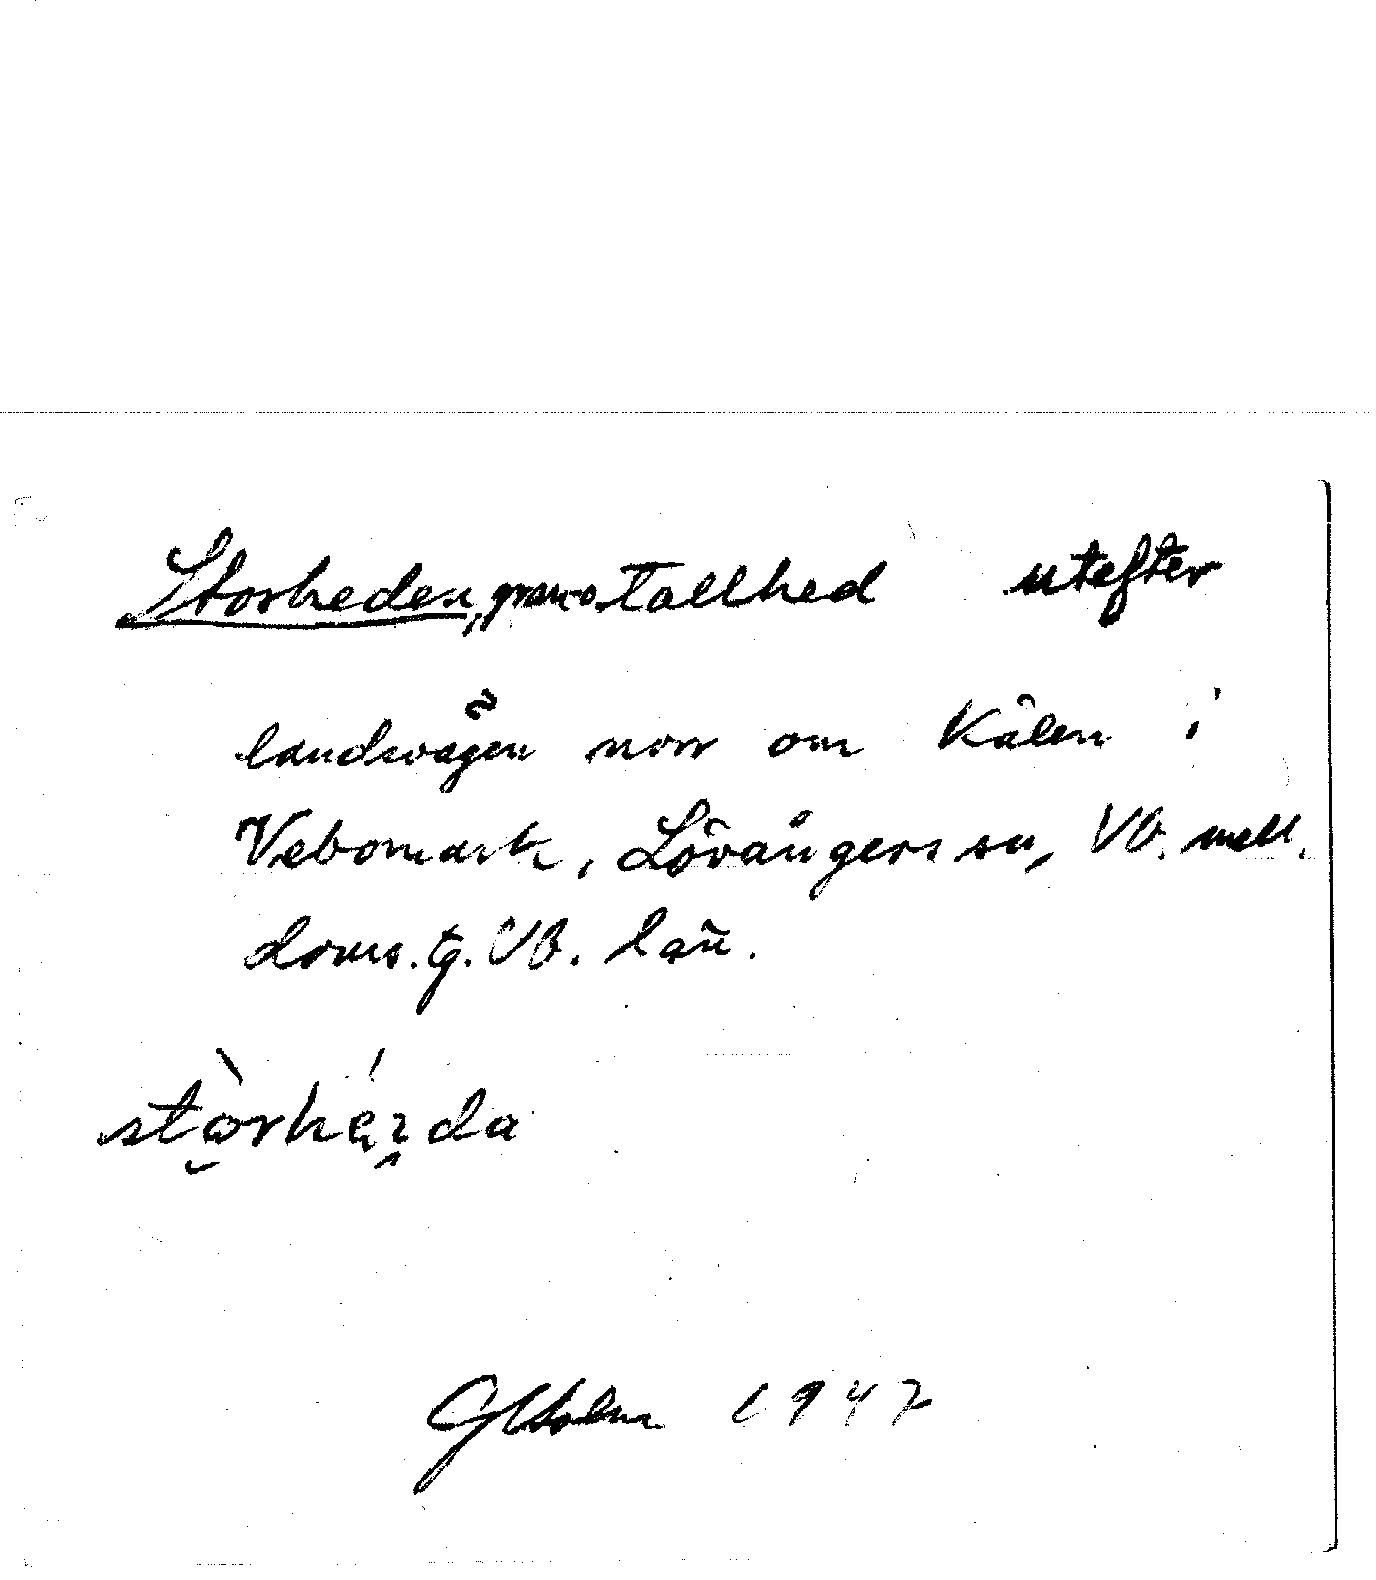 Storheden, gran o. tallhed utefter
landsvägen norr om Kålen i
Vebomark, Lövångers sn, Vb. mell.
doms. tg. Vb. län.
Holm 1947